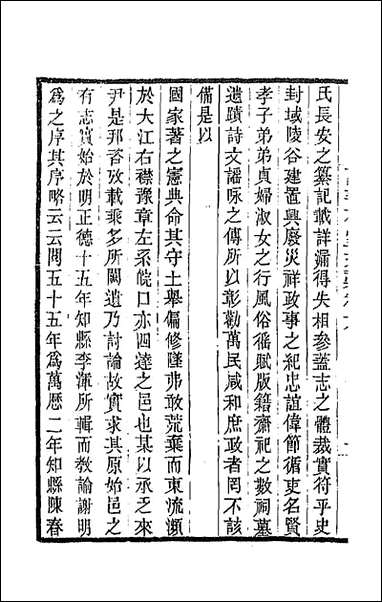 氏長安之纂記載詳漏得失相參蓋志之體裁實符乎史
封域陵谷建置興廢災祥政事之紀忠誼偉節循吏名賢
孝子弟弟貞婦淑女之行風俗徭賦版籍肅祀之數祠墓
遺蹟詩文謡咏之傳所以彰勸萬民咸和庶政者罔不該
備是以
國家著之憲典命其守土舉偏修墜弗敢荒棄而東流瀕
於大江右襟豫章左系皖口亦四達之邑也某以承乏來
尹是邦咨攷載乘多所闕遺乃討論故實求其原始邑之
有志實始於明正德十五年知縣李渾所輯而教諭謝明
為之序其序略云云閱五十五年為萬歷二年知縣陳春